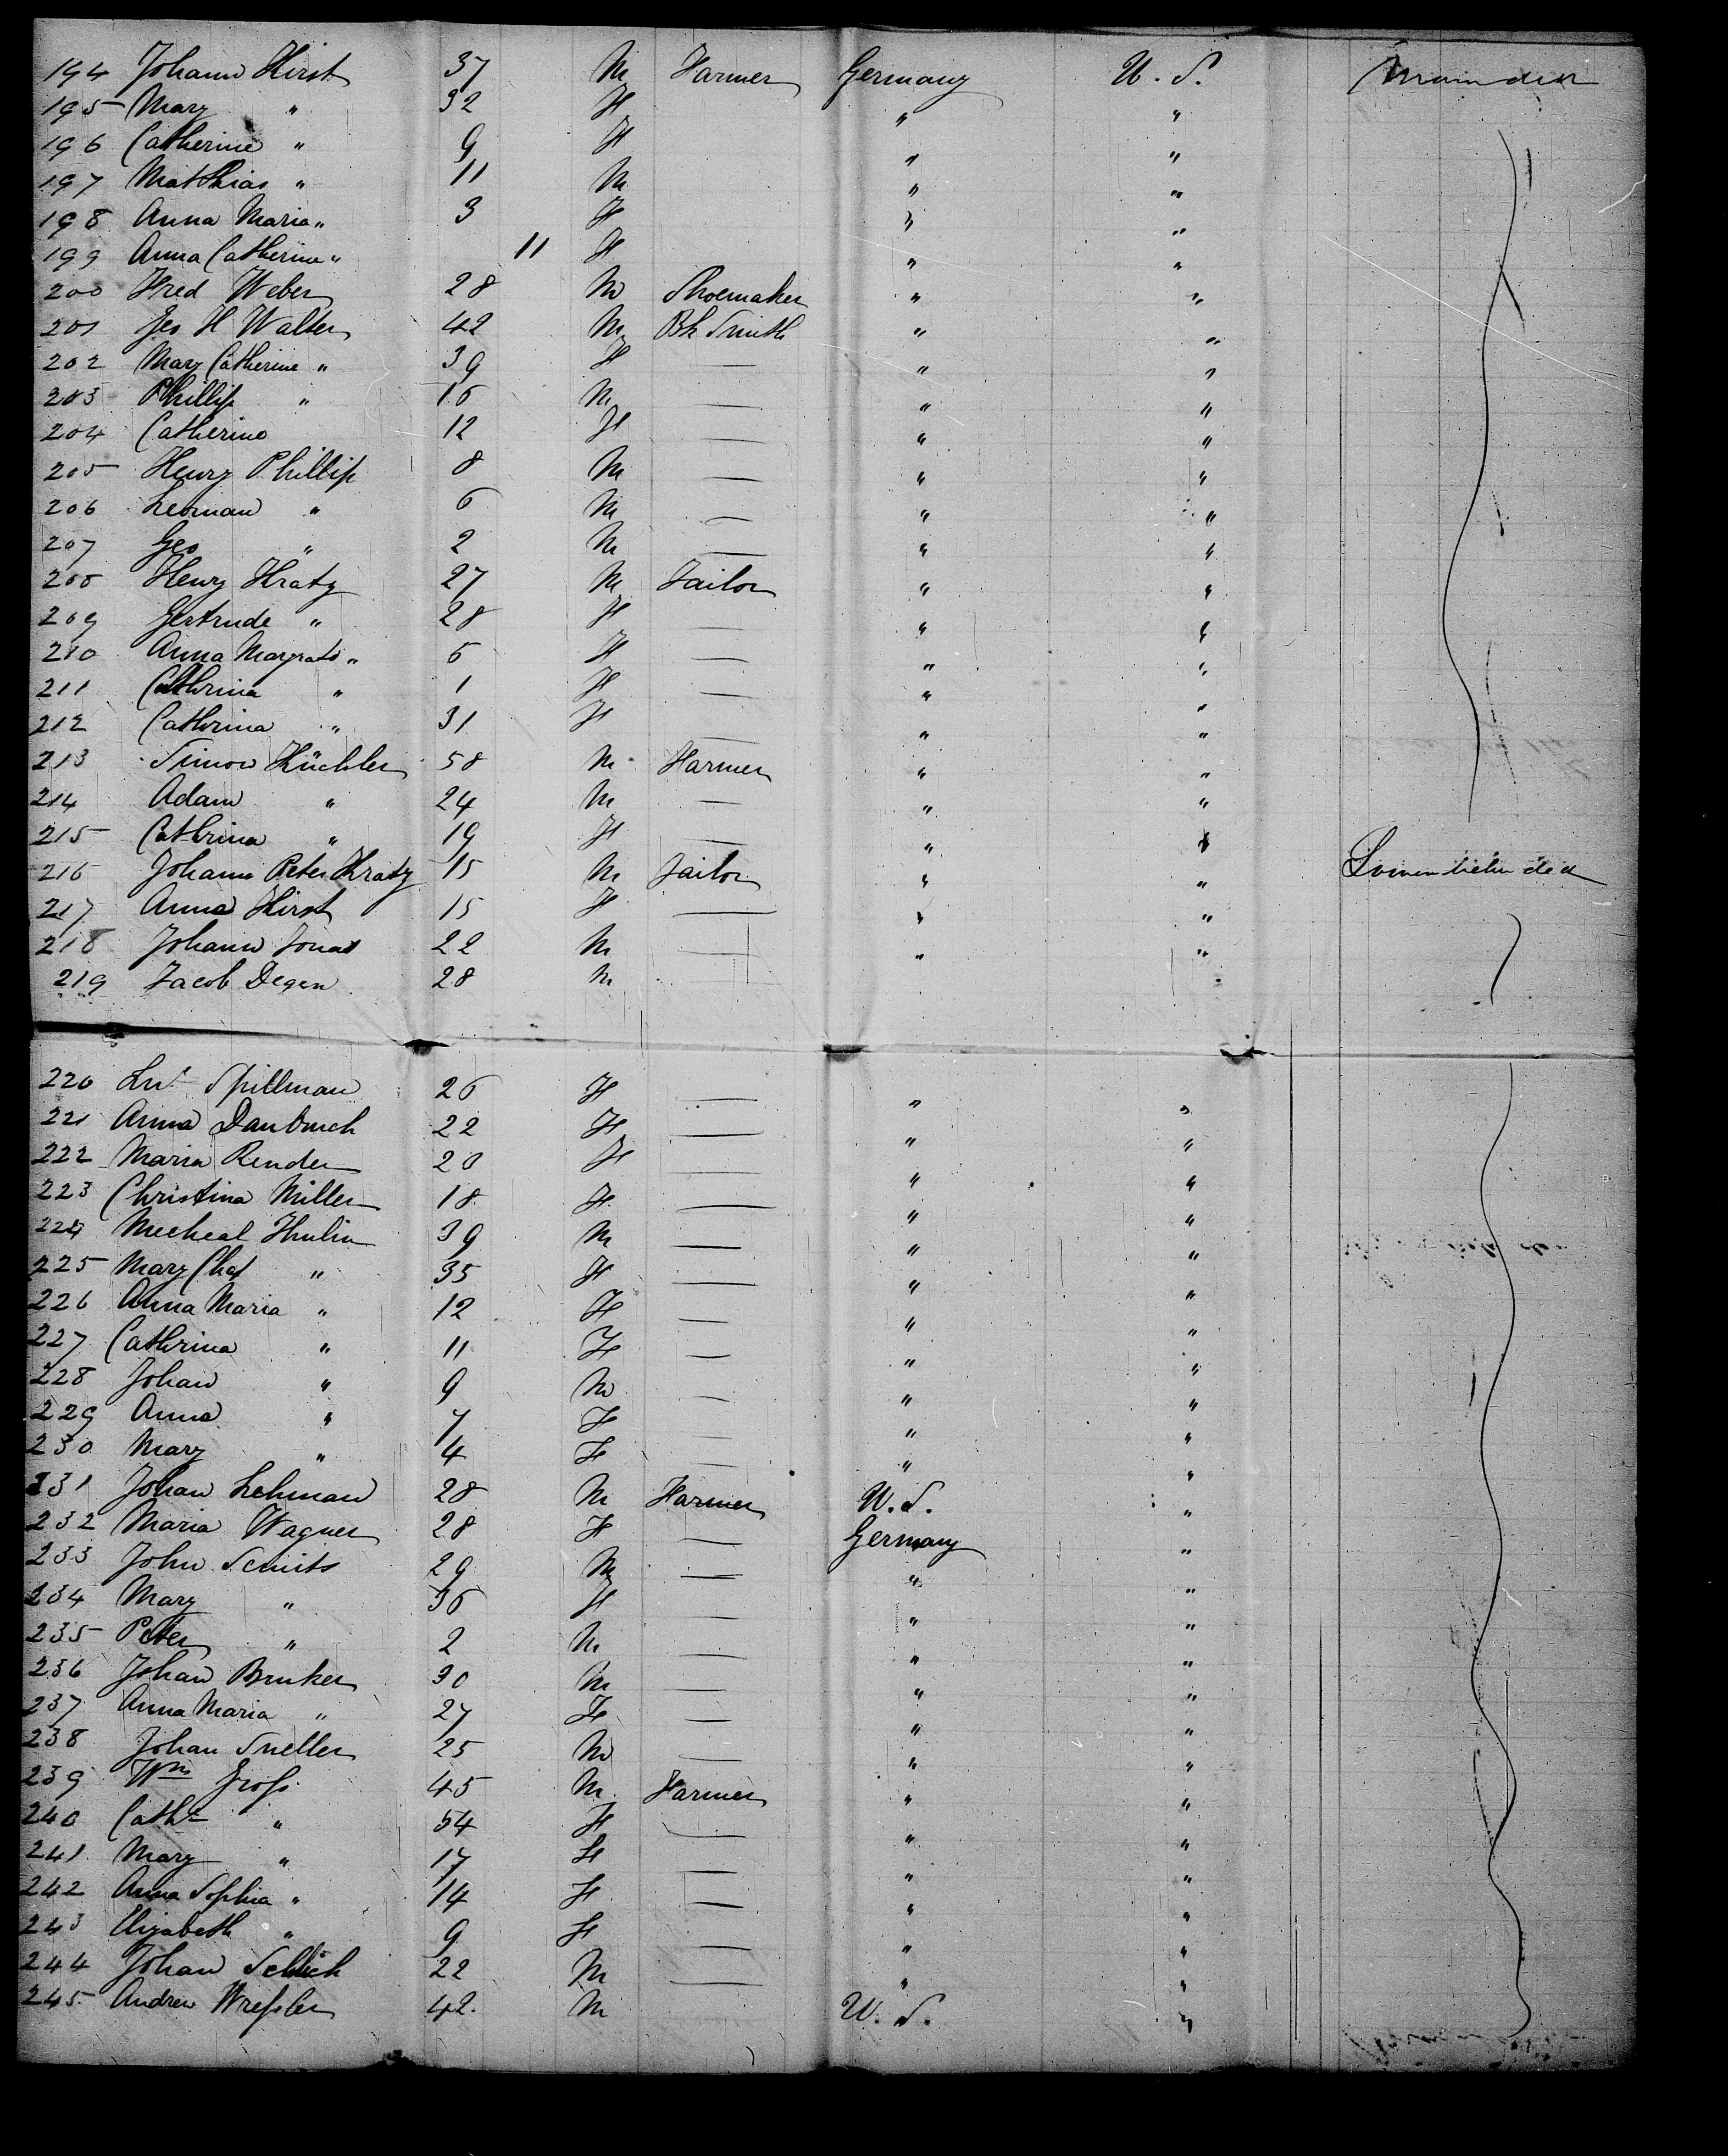 194 Johann Hirst 37 M Farmer Germany U. S. Main deck
195 Mary " 32 F " "
196 Catherine " 9 F " "
197 Matthias " 11 M " "
198 Anna Maria " 3 F " "
199 Anna Catherine " 11 F " "
200 Fred Weber 28 M Shoemaker " "
201 Geo H Walter 42 M Bk Smith " "
202 Mary Catherine " 39 F — " "
203 Phillip " 16 M — " "
204 Catherine 12 F — " "
205 Henry Phillip 8 M — " "
206 Leonan " 6 M — " "
207 Geo " 2 M — " "
208 Henry Kratz 27 M Tailor " "
209 Gertrude " 28 F — " "
210 Anna Margrate " 5 F — " "
211 Cathrina " 1 F — " "
212 Cathrina " 31 F — " "
213 Simon Küchler 58 M Farmer " "
214 Adam " 24 M — " "
215 Cathrina " 19 F — " "
216 Johann Peter Kratz 15 M Tailor " " deck
217 Anna Hirst 15 F — " "
218 Johann Jonas 22 M — " "
219 Jacob Degen 28 M
220 Spillman 26 F — " "
221 Anna 22 F — " "
222 Maria Render 20 F — " "
223 Christina Miller 18 F — " "
224 Mecheal 39 M — " "
225 Mary Chat " 35 F — " "
226 Anna Maria " 12 F — " "
227 Cathrina " 11 F — " "
228 Johan " 9 M — " "
229 Anna " 7 F — " "
230 Mary " 4 F — " "
231 Johan Lehman 28 M Farmer U. S. "
232 Maria Wagner 28 F — Germany "
233 John Scmits 29 M — " "
234 Mary " 36 F — " "
235 Peter " 2 M — " "
236 Johan Bruker 30 M — " "
237 Anna Maria " 27 F — " "
238 Johan Sneller 25 M — " "
239 Wm Gross 45 M Farmer " "
240 Cathe " 54 F — " "
241 Mary " 17 F — " "
242 Anna Sophia " 14 F — " "
243 Elizabeth " 9 F — " "
244 Johan 22 M — " "
245 Andrew Wressler 42 M U. S. "